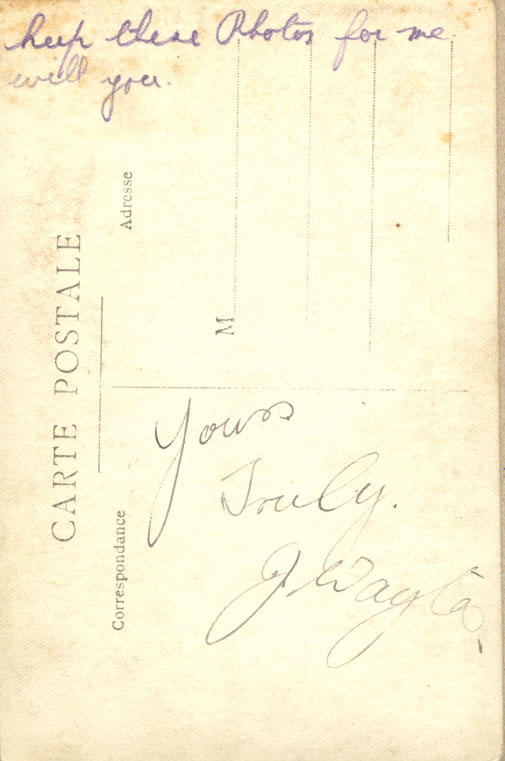 keep these Photos for me
will you.
CARTE POSTALE
Adresse
M
Correspondance
Yours
Truly.
J.